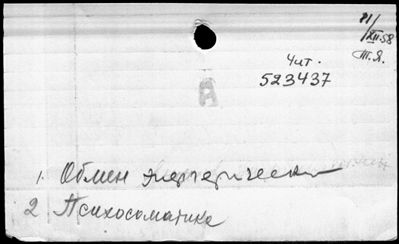 11/XII-58
Т.Я.
Чит.
523437
А
1. Обмен энергетически
2 Психосоматике